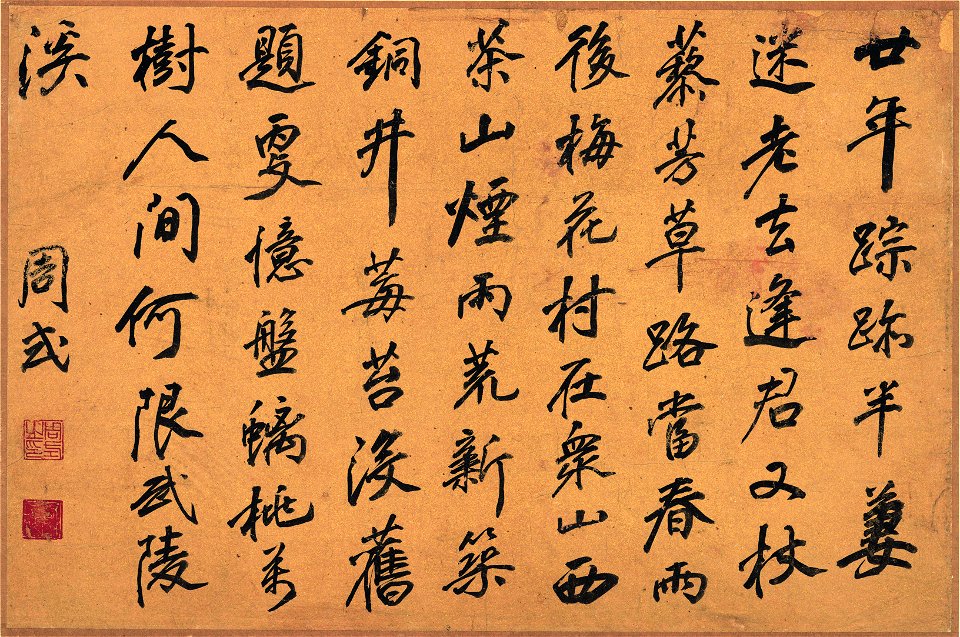 廿年踪跡半萋
迷老去逢君又杖
藜芳草路當春雨
後梅花村在衆山西
茶山煙雨荒新築
銅井莓苔沒舊
題更憶盤螭桃萬
樹人間何限武陵
溪
周